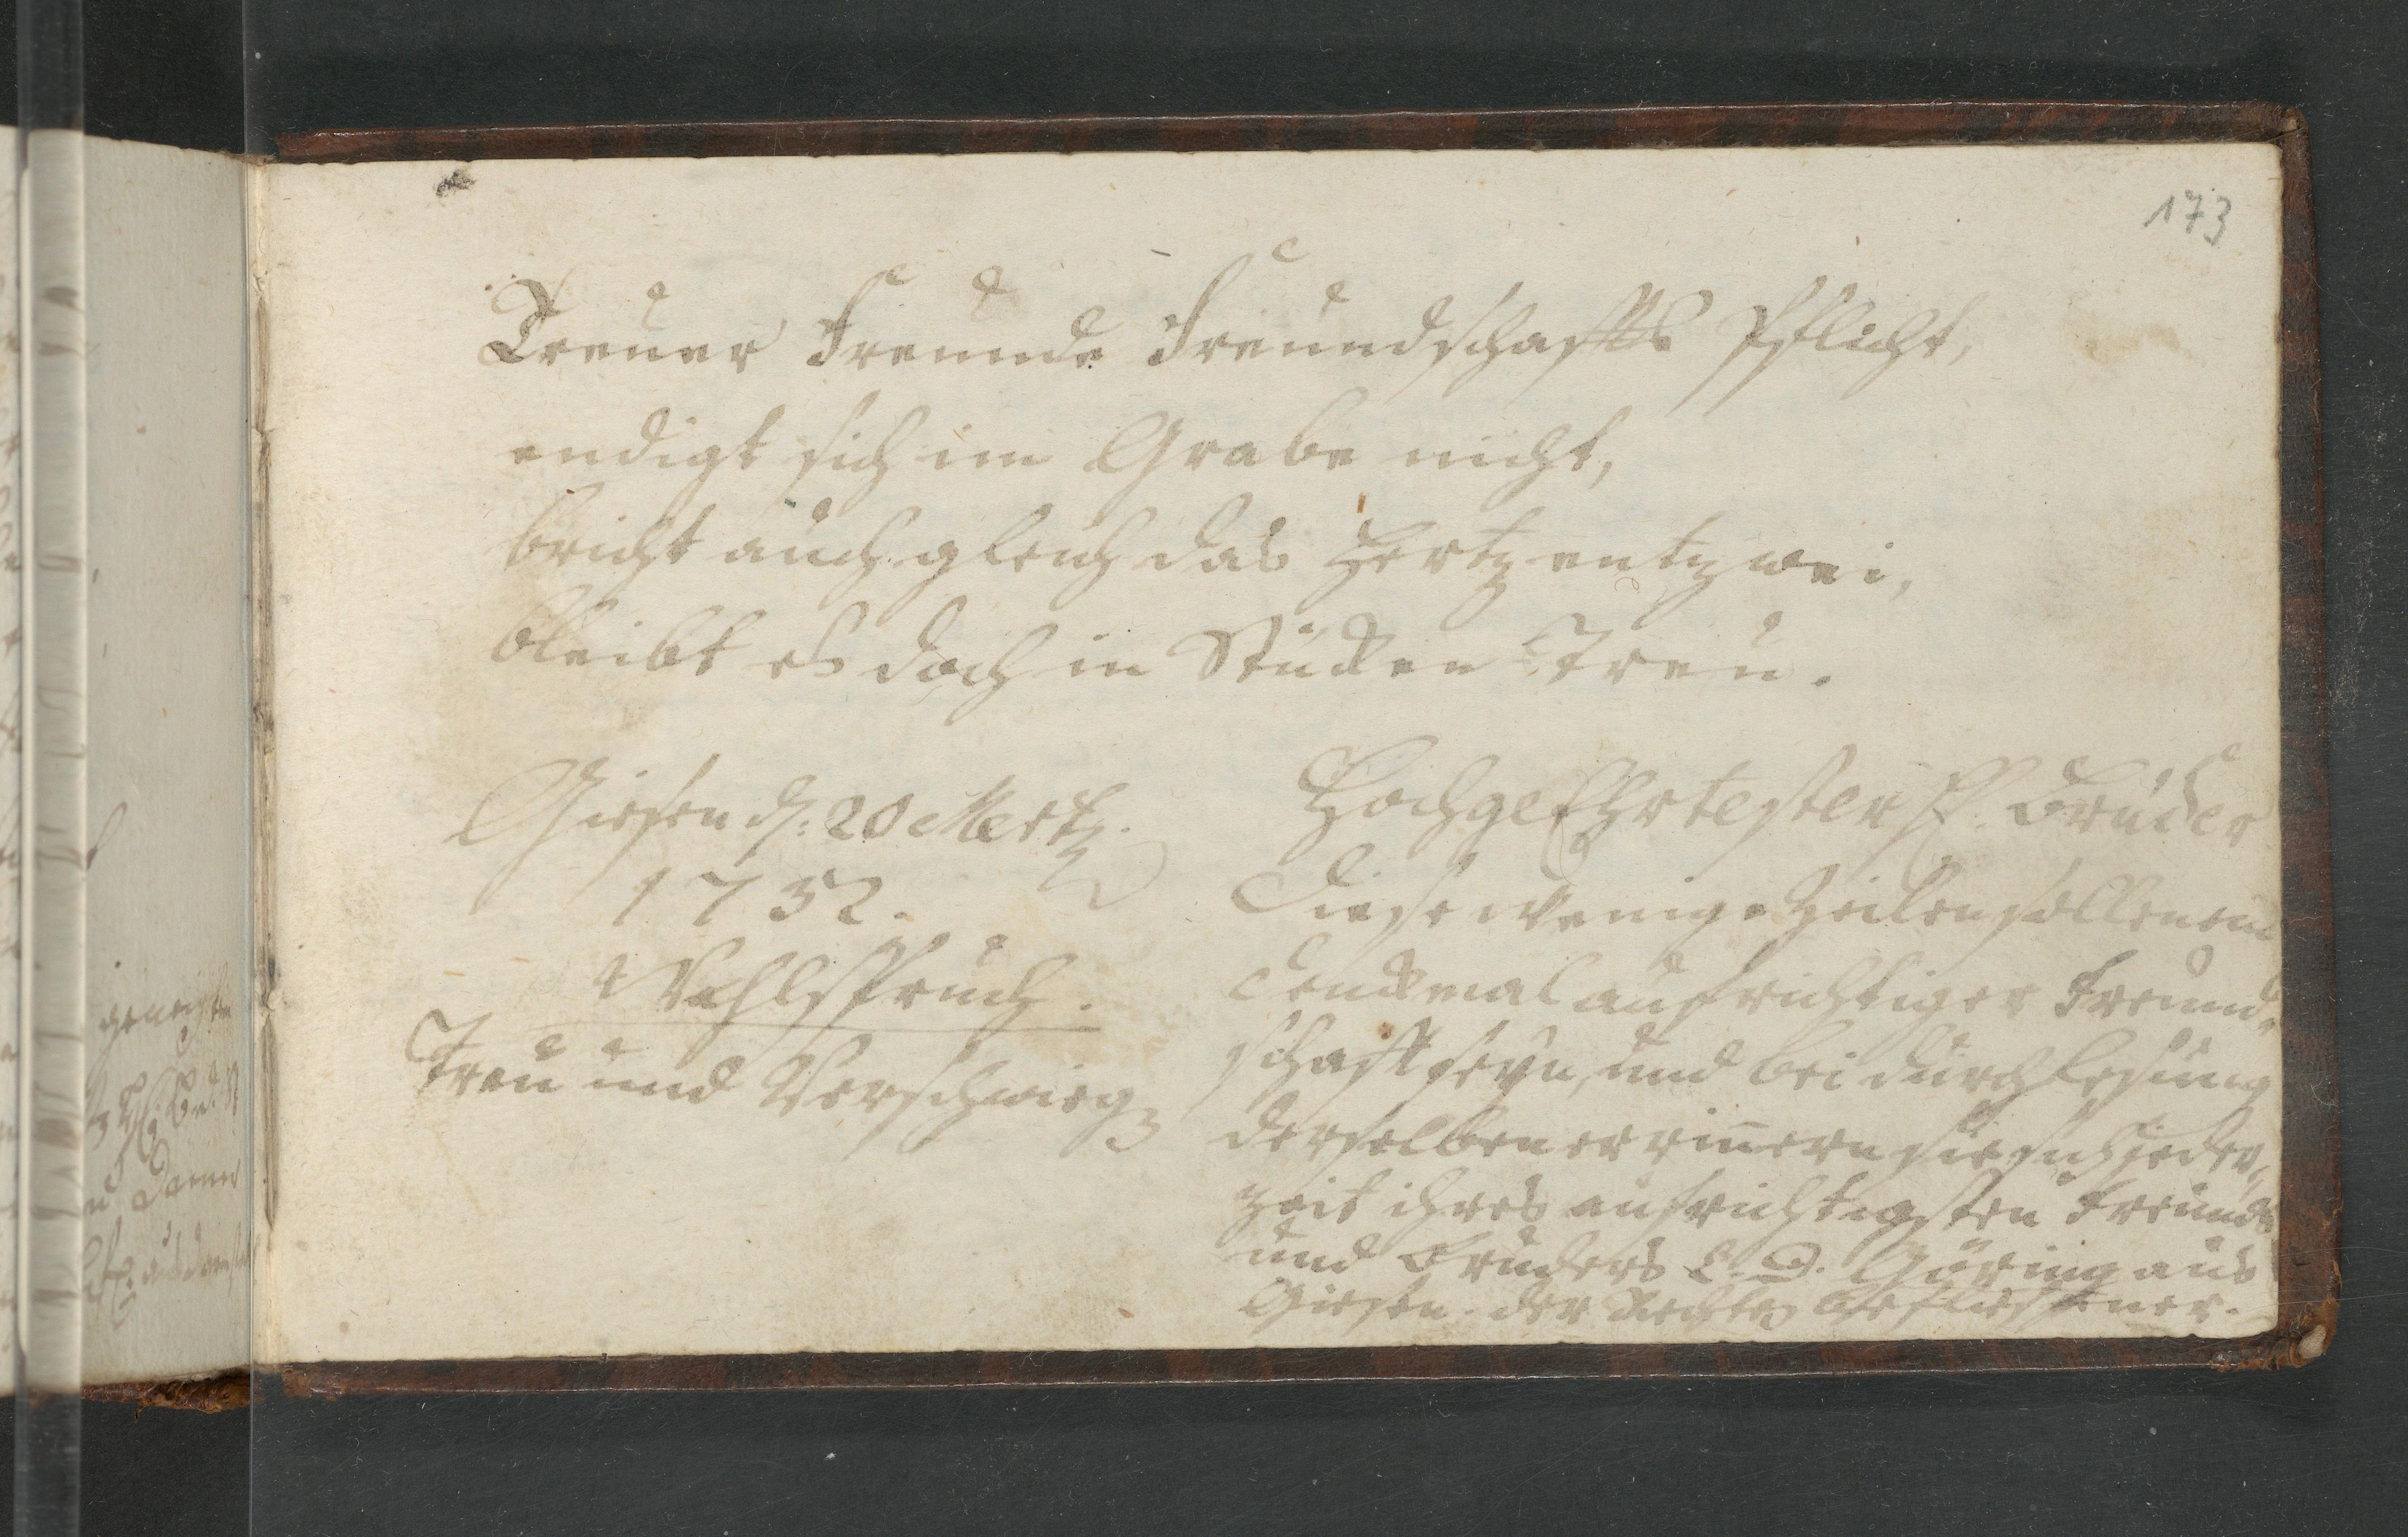 173
Treuer Freunde Freundschaffts Pflicht,
endigt sich im Grabe nicht,
bricht auch gleich das Hertz entzwei,
bleibt es doch in Stücken Treu.
Giesen d. 20 Mertz.
1752.
Wahlspruch.
Treu und Verschwieg
HochgeEhrtester H. Bruder
Diese wenige Zeilen sollen ein
denckmal aufrichtiger Freund-
schafft seyn, und bei durchlesung
derselben errinnern sie sich jeder-
zeit ihres aufrichtigsten Freunds
und Bruders Göring aus
Giesen. der Rechten befliessener.
geneigten